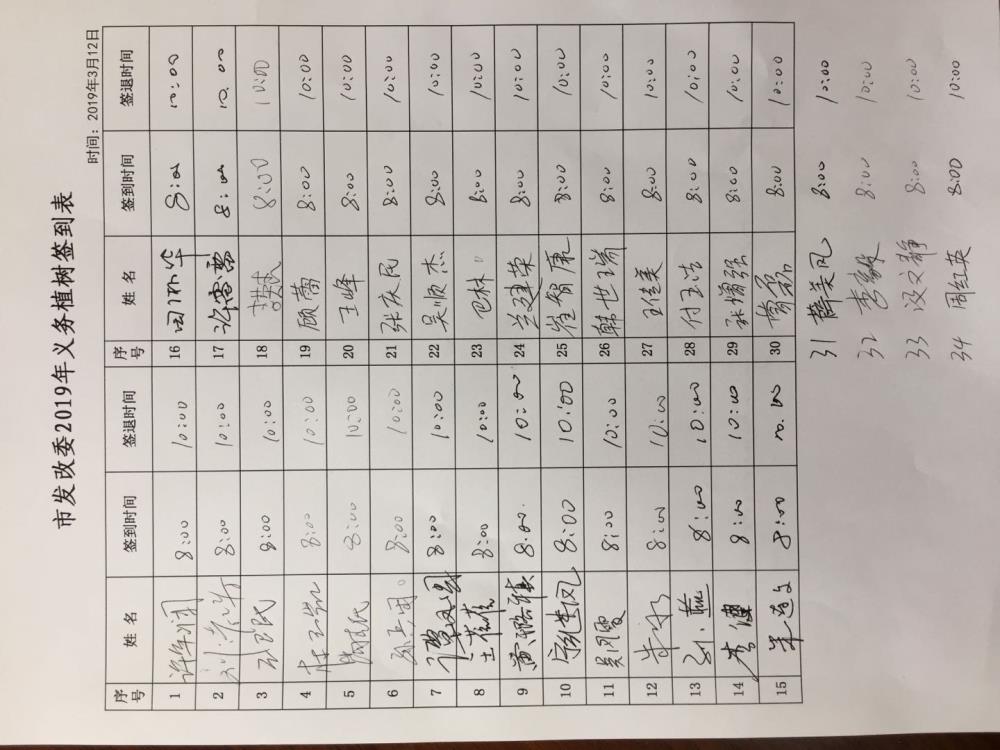 市发改委2019年义务植树签到表
时间：2019年3月12日
序号 姓名 签到时间 签退时间 序号 姓名 签到时间 签退时间
1 8:00 10:00 16 8:00 10:00
2 8:00 10:00 17 许霈霈 8:00 10:00
3 8:00 10:00 18 8:00 10:00
4 8:00 10:00 19 顾蕾 8:00 10:00
5 8:00 10:00 20 王峰 8:00 10:00
6 8:00 10:00 21 张庆民 8:00 10:00
7 8:00 10:00 22 吴顺杰 8:00 10:00
8 8:00 10:00 23 巴林 8:00 10:00
9 8:00 10:00 24 兰建荣 8:00 10:00
10 8:00 10:00 25 崔智康 8:00 10:00
11 8:00 10:00 26 韩世瑞 8:00 10:00
12 8:00 10:00 27 王佳美 8:00 10:00
13 8:00 10:00 28 付玉洁 8:00 10:00
14 李健 8:00 10:00 29 张增强 8:00 10:00
15 8:00 10:00 30 曾磊 8:00 10:00
31 薛美凤 8:00 10:00
32 李毅 8:00 10:00
33 段文静 8:00 10:00
34 周红英 8:00 10:00